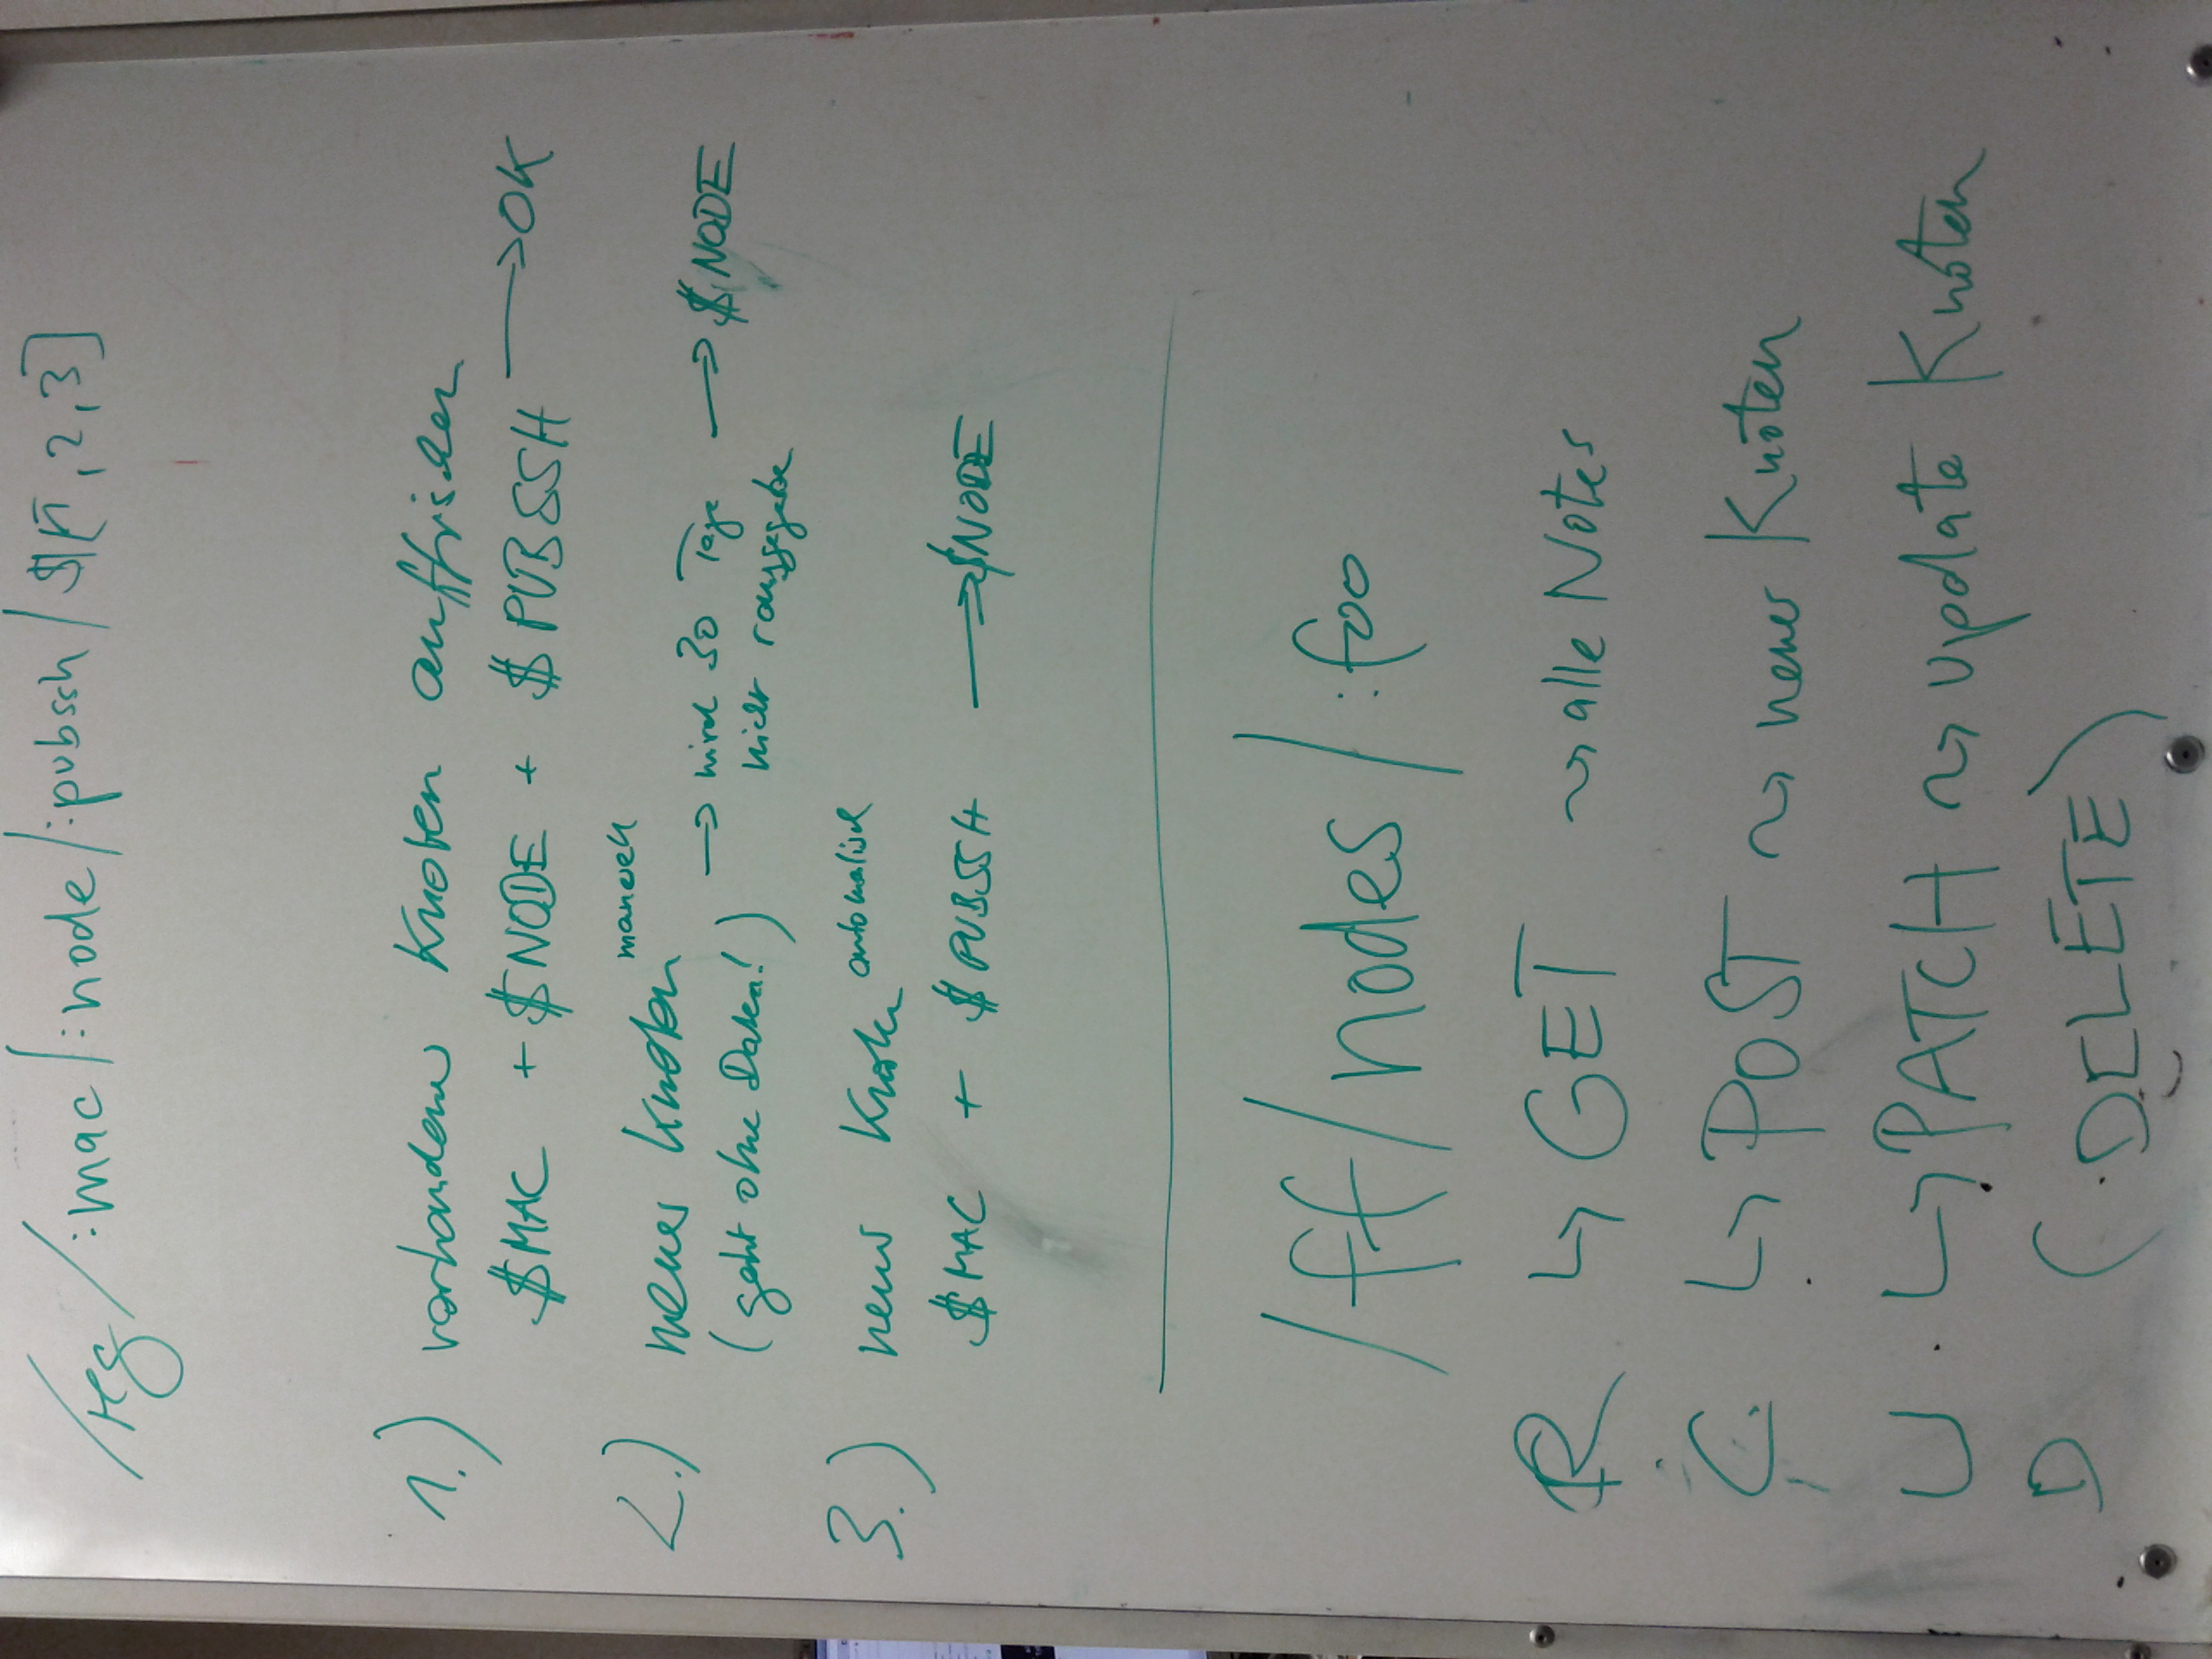 /reg/:mac/:node/:pubssh/$[1,2,3]
1.) vorhandenen Knoten auffrischen
$MAC + $NODE + $PUBSSH → OK
2.) neuer Knoten manuell
(geht ohne Daten!) → wird 30 Tage nicht rausgegeben → $NODE
3.) neuer Knoten automatisch
$MAC + $PUBSSH → $NODE
/ff/nodes/:foo
R ↳ GET ~> alle Notes
C ↳ POST ~> neuer Knoten
U ↳ PATCH ~> update Knoten
D (DELETE)